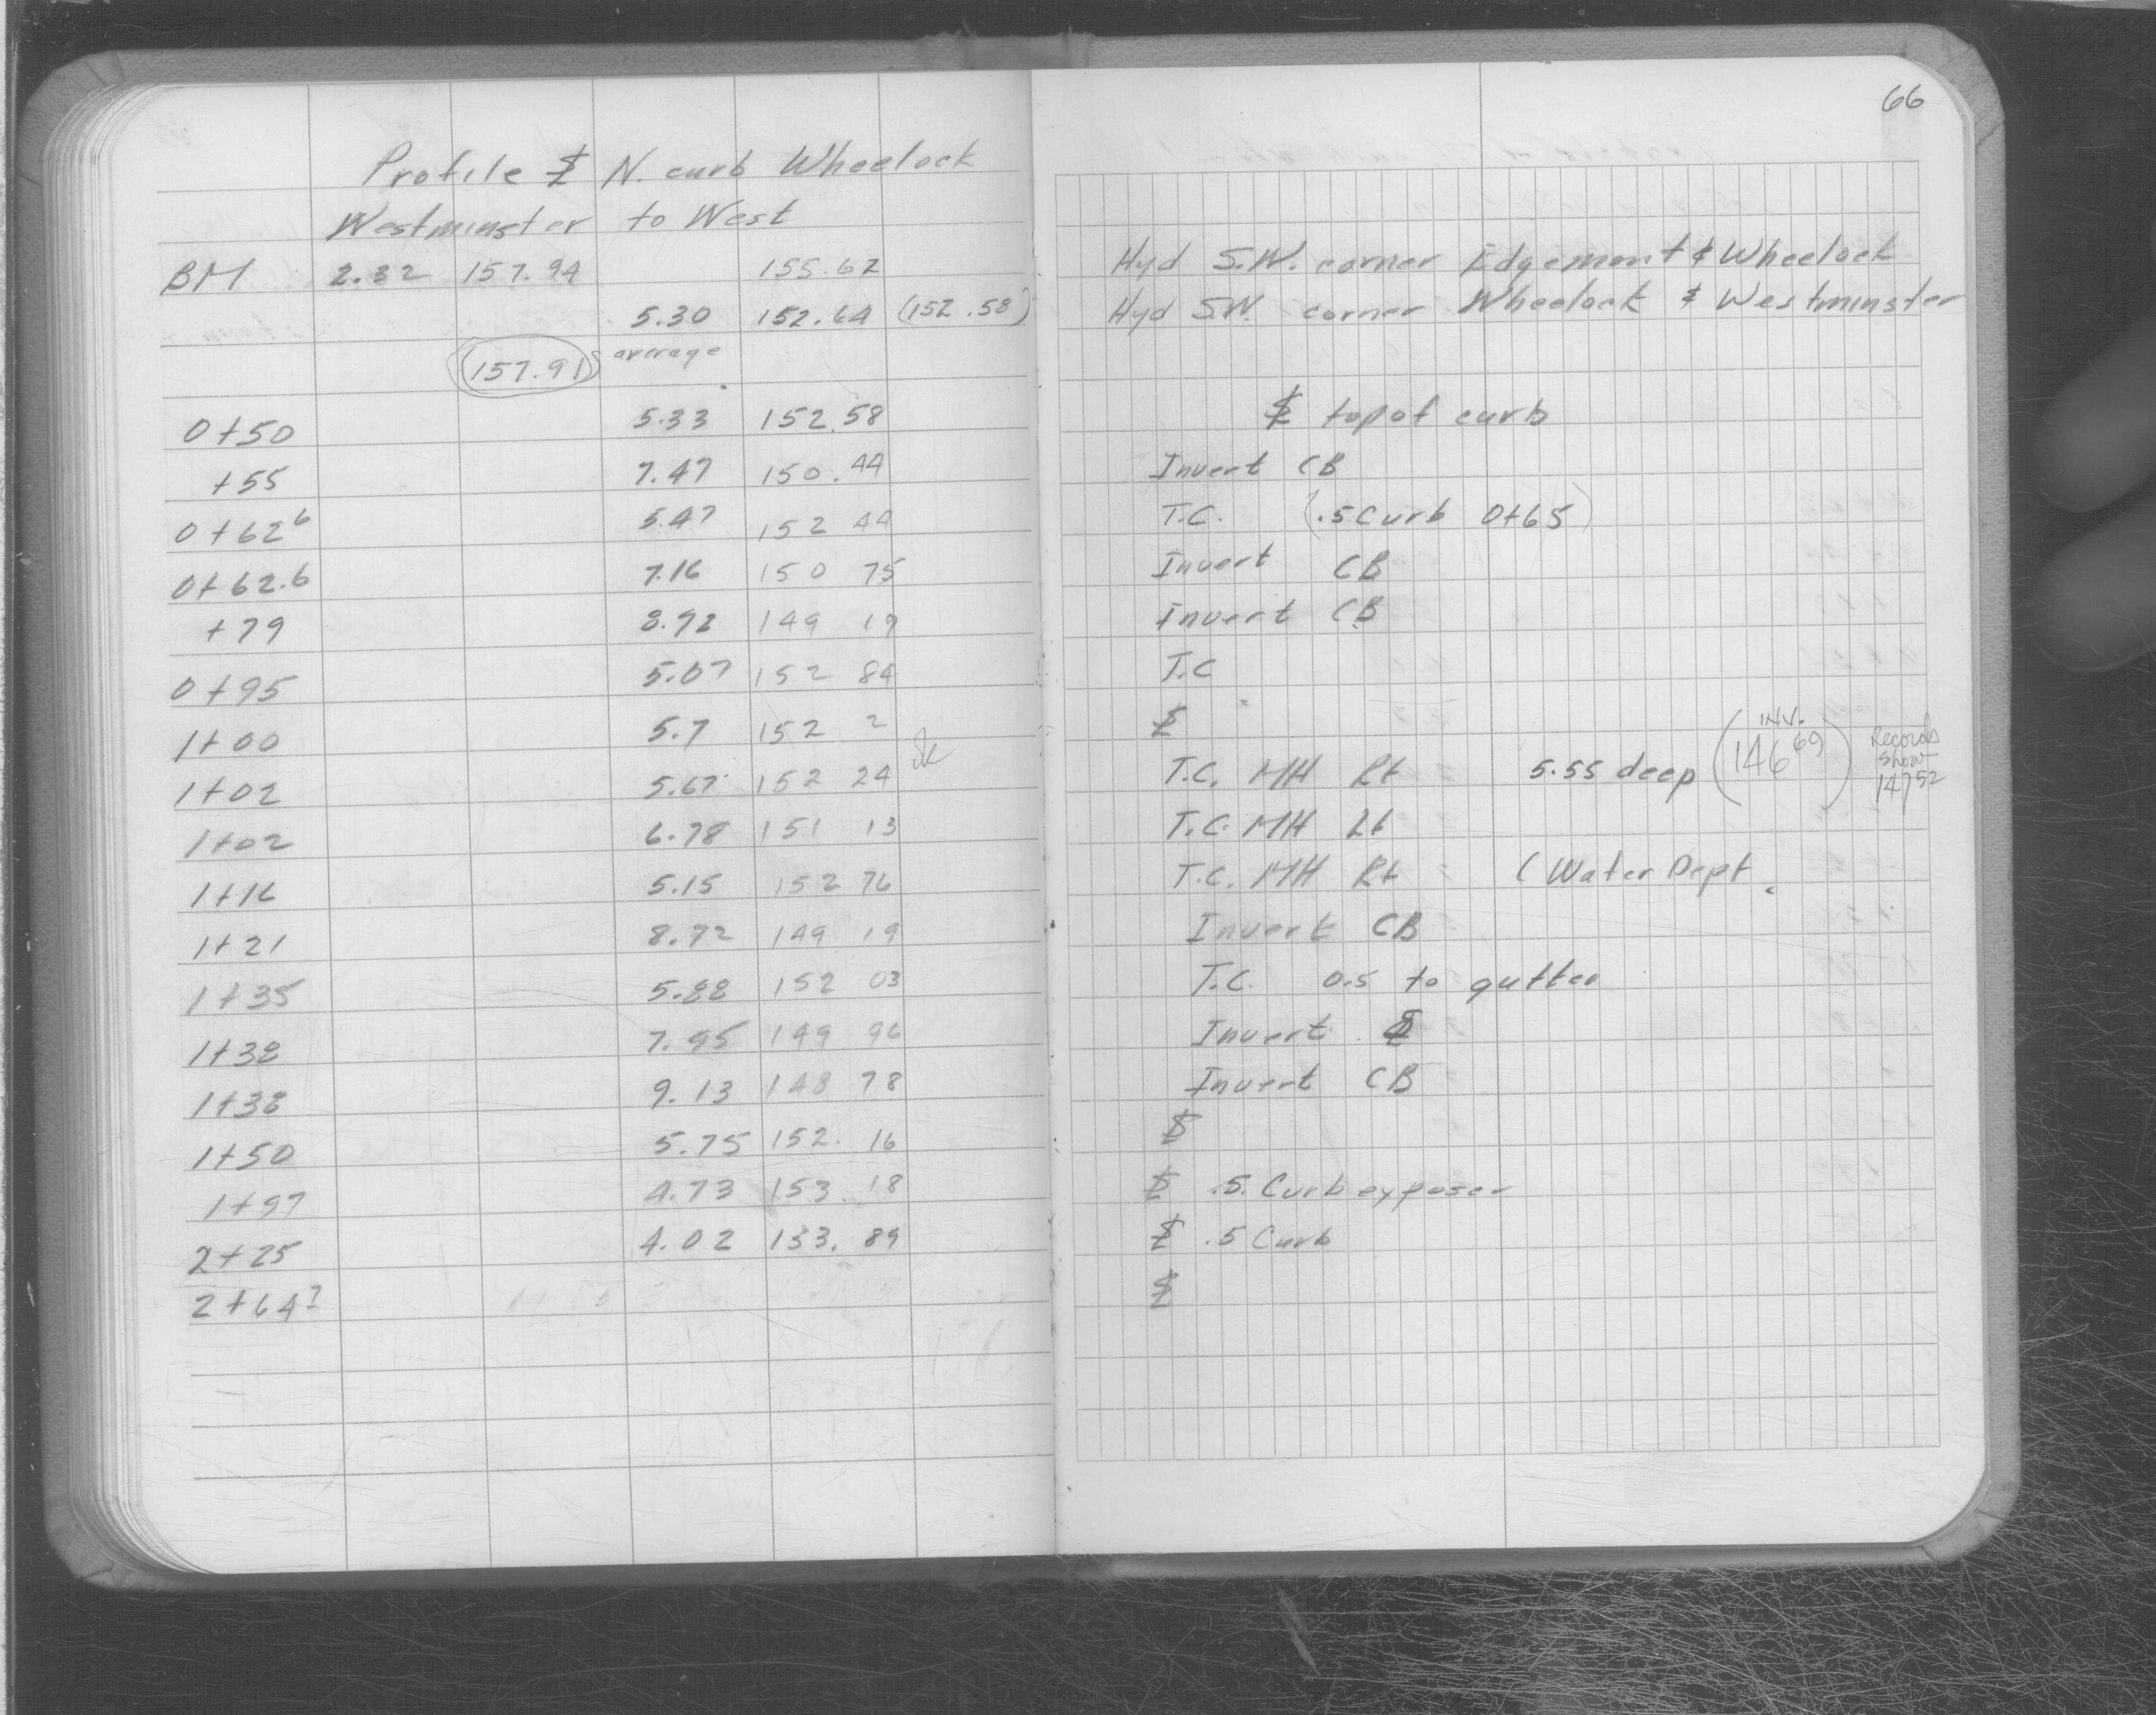 66
Profile ℄ N. curb Wheelock
Westminster to West
BM 2.32 157.94 155.62 Hyd S.W. corner Edgemont & Wheelock
5.30 152.64 (152.58) Hyd S.W. corner Wheelock & Westminster
(157.91) average
0+50 5.33 152.58 ℄ top of curb
+55 7.47 150.44 Invert CB
0+62⁶ 5.47 152 44 T.C. (.5 Curb 0+65)
0+62.6 7.16 150 75 Invert CB
+79 8.72 149 19 Invert CB
0+95 5.07 152 84 T.C
1+00 5.7 152 2 ℄
1+02 5.67 152 24 ok T.C. MH Rt 5.55 deep (INV. 146⁶⁹) Records Show 147⁵²
1+02 6.78 151 13 T.C. MH Lt
1+16 5.15 152 76 T.C. MH Rt (Water Dept.
1+21 8.72 149 19 Invert CB
1+35 5.88 152 03 T.C. 0.5 to gutter
1+38 7.95 149 96 Invert ℄
1+38 9.13 148 78 Invert CB
1+50 5.75 152. 16 ℄
1+97 4.73 153. 18 ℄ .5. Curb exposer
2+25 4.02 153. 89 ℄ .5 Curb
2+64⁷ ℄